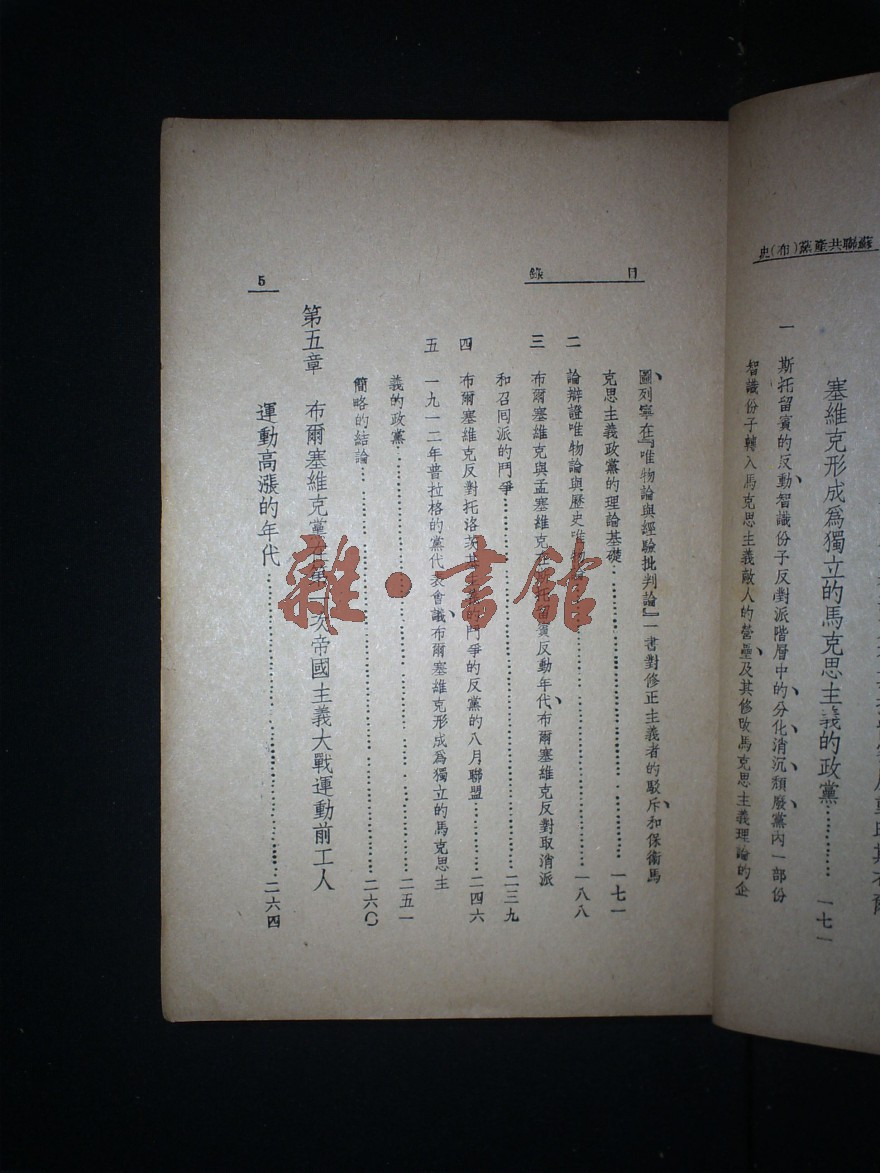 蘇聯共產黨(布)史
塞維克形成爲獨立的馬克思主義的政黨…………一七一
一　斯托留賓的反動、智識份子反對派階層中的分化、消沉、頹廢、黨內一部份
智識份子轉入馬克思主義敵人的營壘、及其修改馬克思主義理論的企
目　錄
圖、列寧在『唯物論與經驗批判論』一書對修正主義者的駁斥、和保衛馬
克思主義政黨的理論基礎…………一七一
二　論辯證唯物論與歷史唯物論…………一八八
三　布爾塞維克與孟塞維克在斯托留賓反動年代、布爾塞維克反對取消派
和召囘派的鬥爭…………二三九
四　布爾塞維克反對托洛茨基主義的鬥爭的反黨的八月聯盟…………二四六
五　一九一二年普拉格的黨代表會議、布爾塞維克形成爲獨立的馬克思主
義的政黨…………二五一
簡略的結論…………二六〇
第五章　布爾塞維克黨在第一次帝國主義大戰運動前工人
運動高漲的年代…………二六四
5
雜·書館